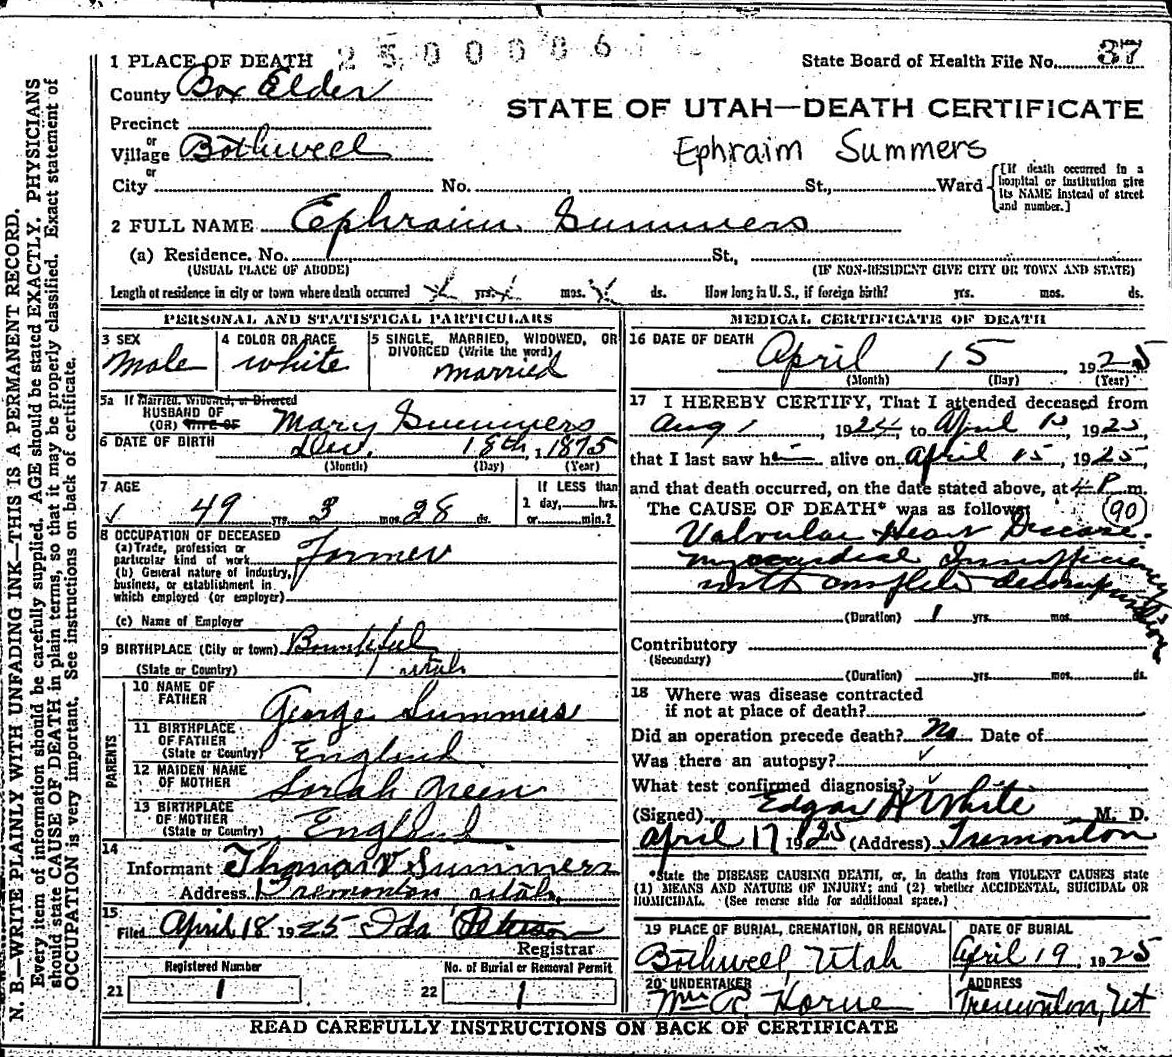 1 PLACE OF DEATH 2500086
State Board of Health File No. 37
County Box Elder
STATE OF UTAH—DEATH CERTIFICATE
Precinct
or
Village Bothwell
Ephraim Summers
or
City No. St., Ward
[If death occurred in a hospital or institution give its NAME instead of street and number.]
2 FULL NAME Ephraim Summers
(a) Residence. No. St.,
(USUAL PLACE OF ABODE) (IF NON-RESIDENT GIVE CITY OR TOWN AND STATE)
Length of residence in city or town where death occurred yrs. mos. ds. How long in U. S., if foreign birth? yrs. mos. ds.
PERSONAL AND STATISTICAL PARTICULARS
3 SEX
male
4 COLOR OR RACE
white
5 SINGLE, MARRIED, WIDOWED, OR
DIVORCED (Write the word)
married
5a If Married, Widowed, or Divorced
HUSBAND OF
(OR) WIFE OF Mary Summers
6 DATE OF BIRTH 18th, 1875
(Month) (Day) (Year)
7 AGE
49 yrs. 3 mos. 28 ds.
If LESS than
1 day, hrs.
or min.?
8 OCCUPATION OF DECEASED
(a) Trade, profession or
particular kind of work Farmer
(b) General nature of industry,
business, or establishment in
which employed (or employer)
(c) Name of Employer
9 BIRTHPLACE (City or town) Bountiful
(State or Country) Utah
PARENTS
10 NAME OF
FATHER George Summers
11 BIRTHPLACE
OF FATHER
(State or Country) England
12 MAIDEN NAME
OF MOTHER Sarah Green
13 BIRTHPLACE
OF MOTHER
(State or Country) England
14
Informant Thomas V Summers
Address Tremonton Utah
15
Filed April 18 1925 Ida Peterson
Registrar
Registered Number
21 1
No. of Burial or Removal Permit
22 1
MEDICAL CERTIFICATE OF DEATH
16 DATE OF DEATH April 15 1925
(Month) (Day) (Year)
17 I HEREBY CERTIFY, That I attended deceased from
Aug 1, 1924, to April 15 1925,
that I last saw him alive on April 15, 1925,
and that death occurred, on the date stated above, at 4 P. m.
The CAUSE OF DEATH* was as follows: 90
Valvular Heart Disease.
myocardial Insufficiency
with complete decompensation
(Duration) 1 yrs. mos.
Contributory
(Secondary)
(Duration) yrs. mos. ds.
18 Where was disease contracted
if not at place of death?
Did an operation precede death? No Date of
Was there an autopsy?
What test confirmed diagnosis?
(Signed) Edgar H White M. D.
April 17 1925 (Address) Tremonton
*State the DISEASE CAUSING DEATH, or, in deaths from VIOLENT CAUSES state
(1) MEANS AND NATURE OF INJURY; and (2) whether ACCIDENTAL, SUICIDAL OR
HOMICIDAL. (See reverse side for additional space.)
19 PLACE OF BURIAL, CREMATION, OR REMOVAL
Bothwell, Utah
DATE OF BURIAL
April 19, 1925
20 UNDERTAKER
Horne
ADDRESS
Tremonton, Ut
READ CAREFULLY INSTRUCTIONS ON BACK OF CERTIFICATE
N. B.—WRITE PLAINLY WITH UNFADING INK—THIS IS A PERMANENT RECORD.
Every item of information should be carefully supplied. AGE should be stated EXACTLY. PHYSICIANS
should state CAUSE OF DEATH in plain terms, so that it may be properly classified. Exact statement of
OCCUPATION is very important. See instructions on back of certificate.